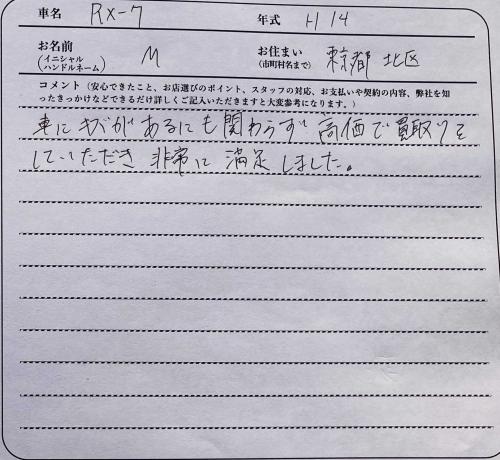 車名 RX-7 年式 H14
お名前 (イニシャル ハンドルネーム) M お住まい (市町村名まで) 東京都 北区
コメント（安心できたこと、お店選びのポイント、スタッフの対応、お支払いや契約の内容、弊社を知
ったきっかけなどできるだけ詳しくご記入いただきますと大変参考になります。）
車にキズがあるにも関わらず 高価で買取りを
していただき 非常に 満足しました。